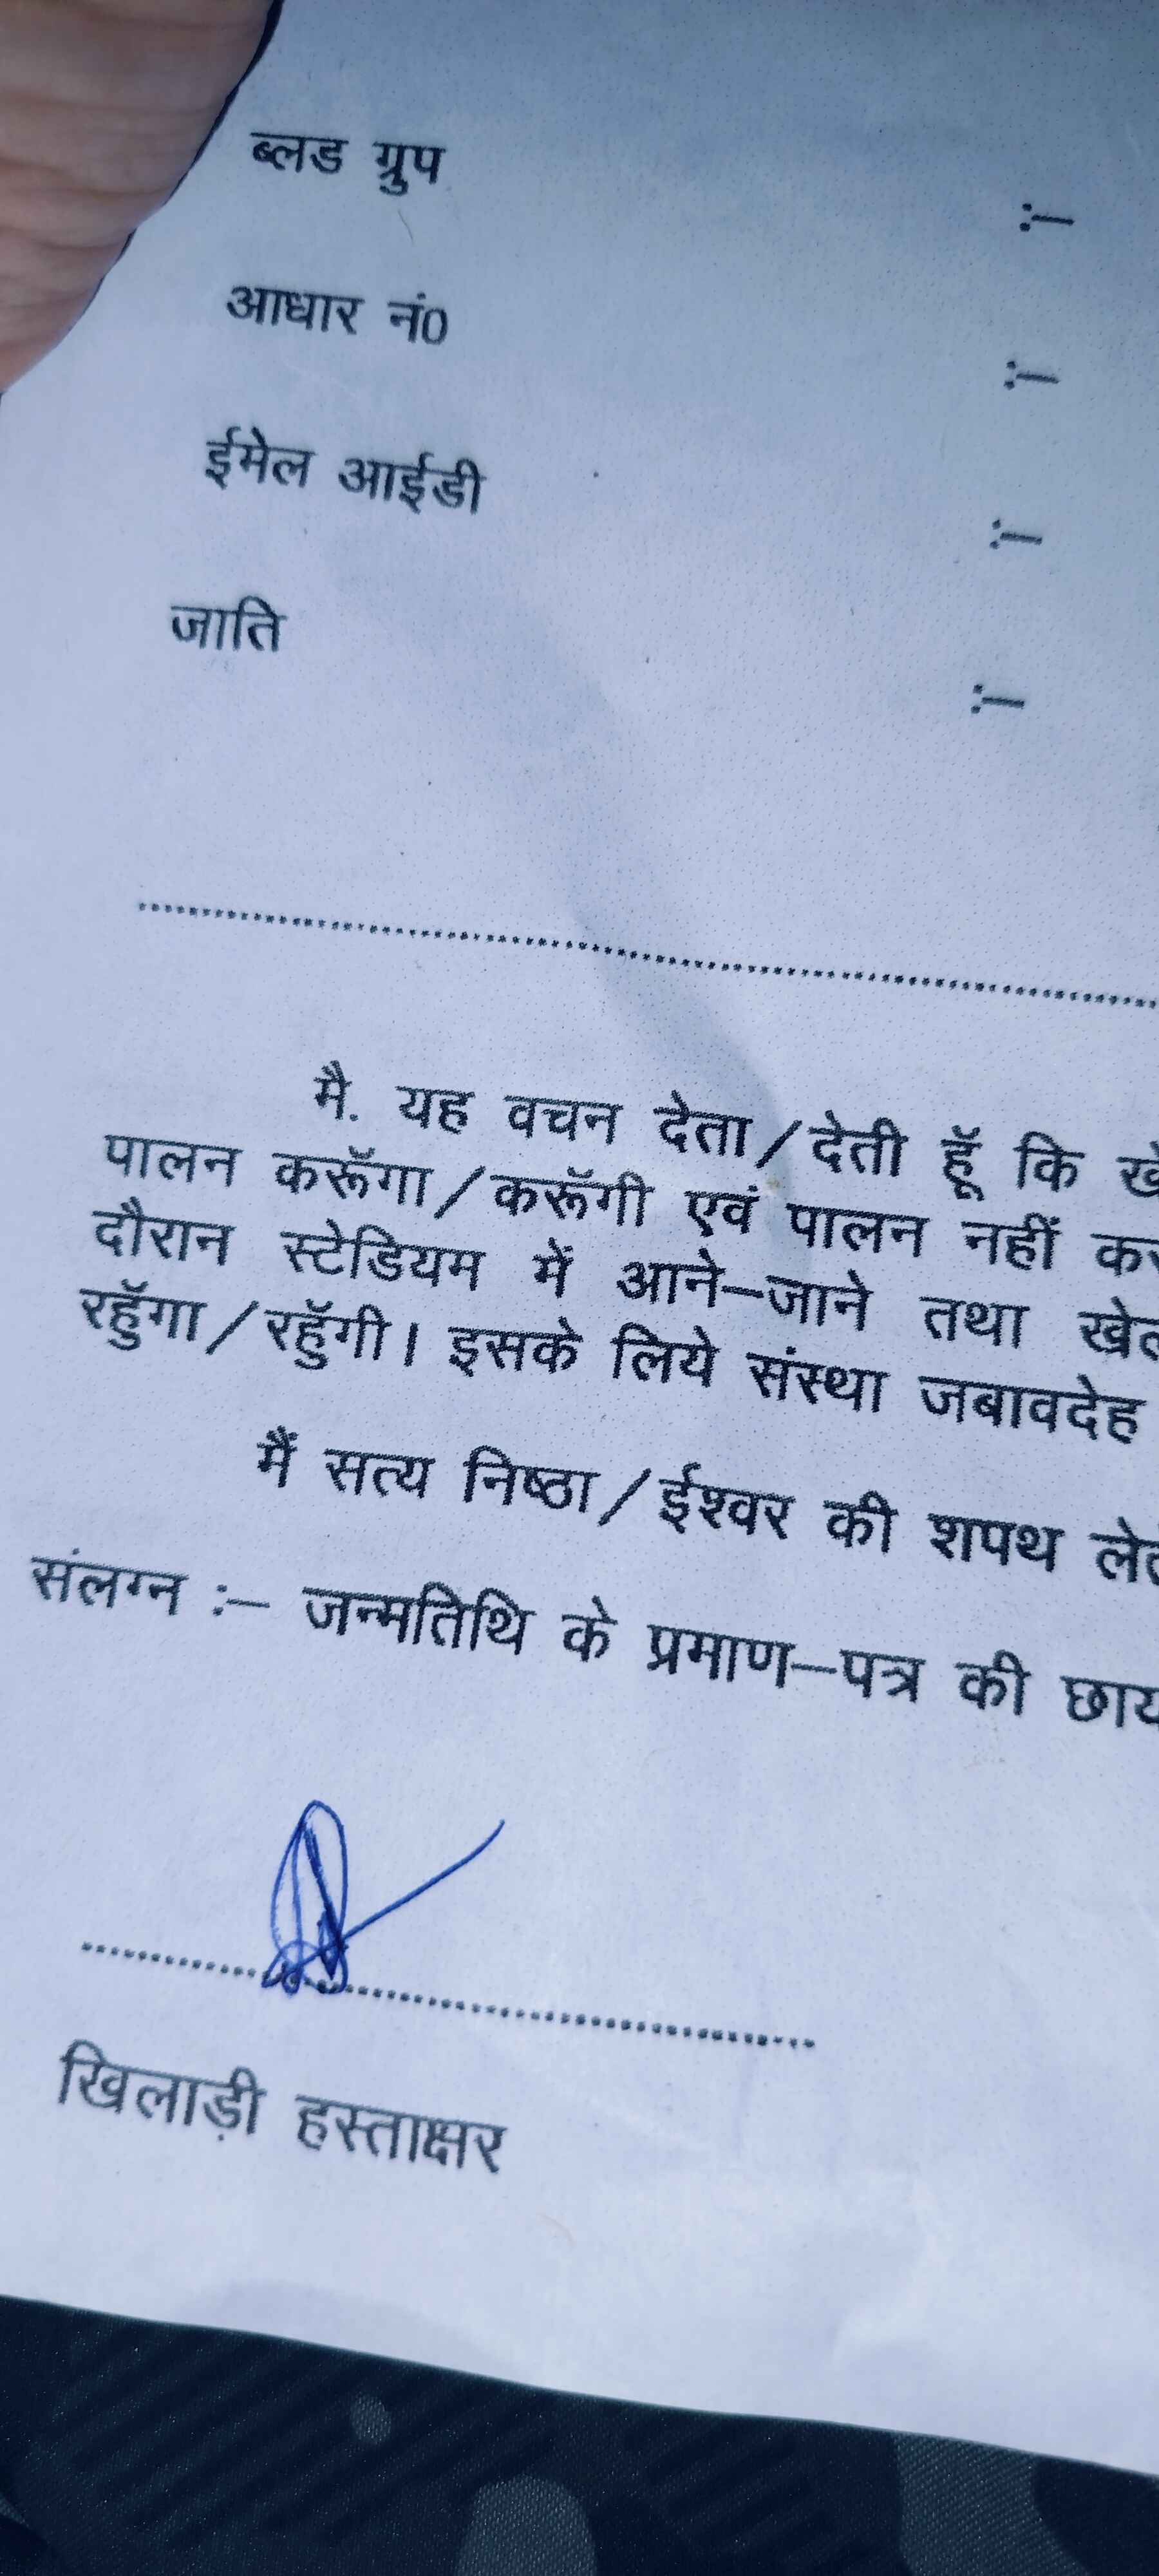 ब्लड ग्रुप :–
आधार नं0 :–
ईमेल आईडी :–
जाति :–
मै. यह वचन देता/देती हूॅ कि
पालन करूॅगा/करूॅगी एवं पालन नहीं
दौरान स्टेडियम में आने–जाने तथा
रहुॅगा/रहुॅगी। इसके लिये संस्था जबावदेह
मैं सत्य निष्ठा/ईश्वर की शपथ
संलग्न :– जन्मतिथि के प्रमाण–पत्र की
खिलाड़ी हस्ताक्षर